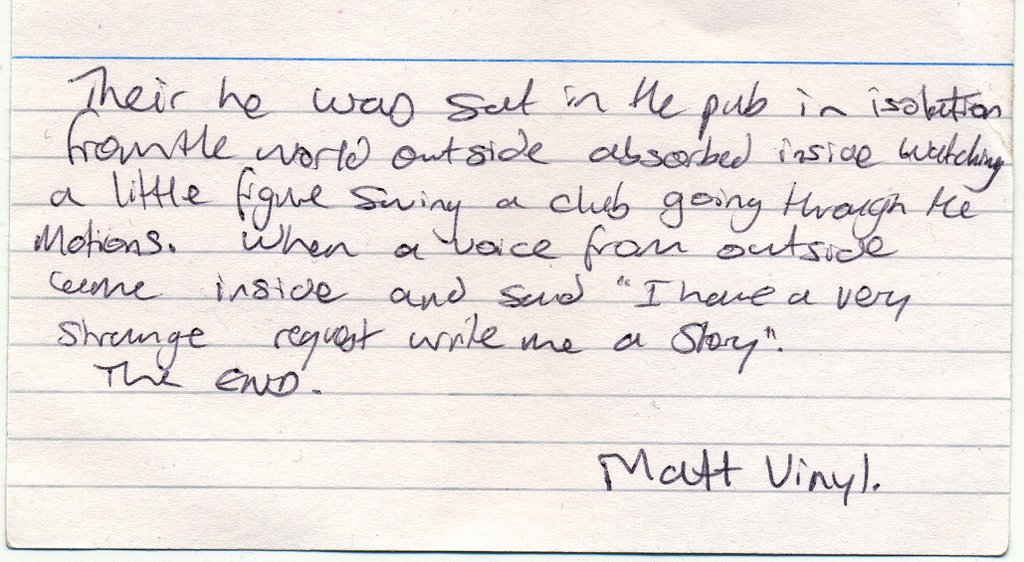 Their he was sat in the pub in isolation
from the world outside absorbed inside watching
a little figure swing a club going through the
Motions. When a voice from outside
came inside and said "I have a very
strange request write me a story".
The END.
Matt Vinyl.